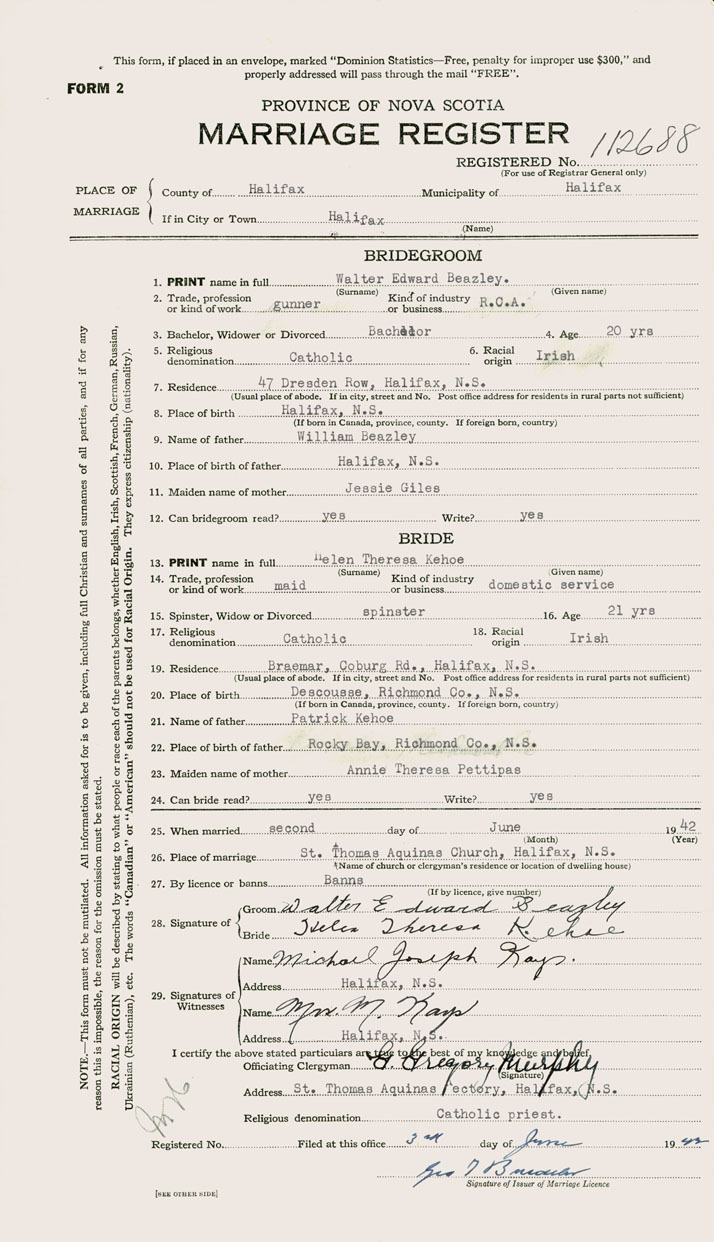 This form, if placed in an envelope, marked “Dominion Statistics—Free, penalty for improper use $300,” and
properly addressed will pass through the mail “FREE”.
FORM 2
PROVINCE OF NOVA SCOTIA
MARRIAGE REGISTER
REGISTERED No. 112688
(For use of Registrar General only)
PLACE OF MARRIAGE
County of Halifax Municipality of Halifax
If in City or Town Halifax
(Name)
BRIDEGROOM
1. PRINT name in full Walter Edward Beazley.
(Surname) (Given name)
2. Trade, profession or kind of work gunner Kind of industry or business R.C.A.
3. Bachelor, Widower or Divorced Bachelor 4. Age 20 yrs
5. Religious denomination Catholic 6. Racial origin Irish
7. Residence 47 Dresden Row, Halifax, N.S.
(Usual place of abode. If in city, street and No. Post office address for residents in rural parts not sufficient)
8. Place of birth Halifax, N.S.
(If born in Canada, province, county. If foreign born, country)
9. Name of father William Beazley
10. Place of birth of father Halifax, N.S.
11. Maiden name of mother Jessie Giles
12. Can bridegroom read? yes Write? yes
BRIDE
13. PRINT name in full Helen Theresa Kehoe
(Surname) (Given name)
14. Trade, profession or kind of work maid Kind of industry or business domestic service
15. Spinster, Widow or Divorced spinster 16. Age 21 yrs
17. Religious denomination Catholic 18. Racial origin Irish
19. Residence Braemar, Coburg Rd., Halifax, N.S.
(Usual place of abode. If in city, street and No. Post office address for residents in rural parts not sufficient)
20. Place of birth Descousse, Richmond Co., N.S.
(If born in Canada, province, county. If foreign born, country)
21. Name of father Patrick Kehoe
22. Place of birth of father Rocky Bay, Richmond Co., N.S.
23. Maiden name of mother Annie Theresa Pettipas
24. Can bride read? yes Write? yes
25. When married second day of June 1942
(Month) (Year)
26. Place of marriage St. Thomas Aquinas Church, Halifax, N.S.
(Name of church or clergyman's residence or location of dwelling house)
27. By licence or banns Banns
(If by licence, give number)
28. Signature of
Groom Walter Edward Beazley
Bride Helen Theresa Kehoe
29. Signatures of Witnesses
Name Michael Joseph Kays.
Address Halifax, N.S.
Name Mrs. M. Kays
Address Halifax, N.S.
I certify the above stated particulars are true to the best of my knowledge and belief.
Officiating Clergyman Gregory Murphy
(Signature)
Address St. Thomas Aquinas rectory, Halifax, N.S.
Religious denomination Catholic priest.
Registered No. Filed at this office 3rd day of June 1942
Signature of Issuer of Marriage Licence
[SEE OTHER SIDE]
NOTE.—This form must not be mutilated. All information asked for is to be given, including full Christian and surnames of all parties, and if for any
reason this is impossible, the reason for the omission must be stated.
RACIAL ORIGIN will be described by stating to what people or race each of the parents belongs, whether English, Irish, Scottish, French, German, Russian,
Ukrainian (Ruthenian), etc. The words “Canadian” or “American” should not be used for Racial Origin. They express citizenship (nationality).